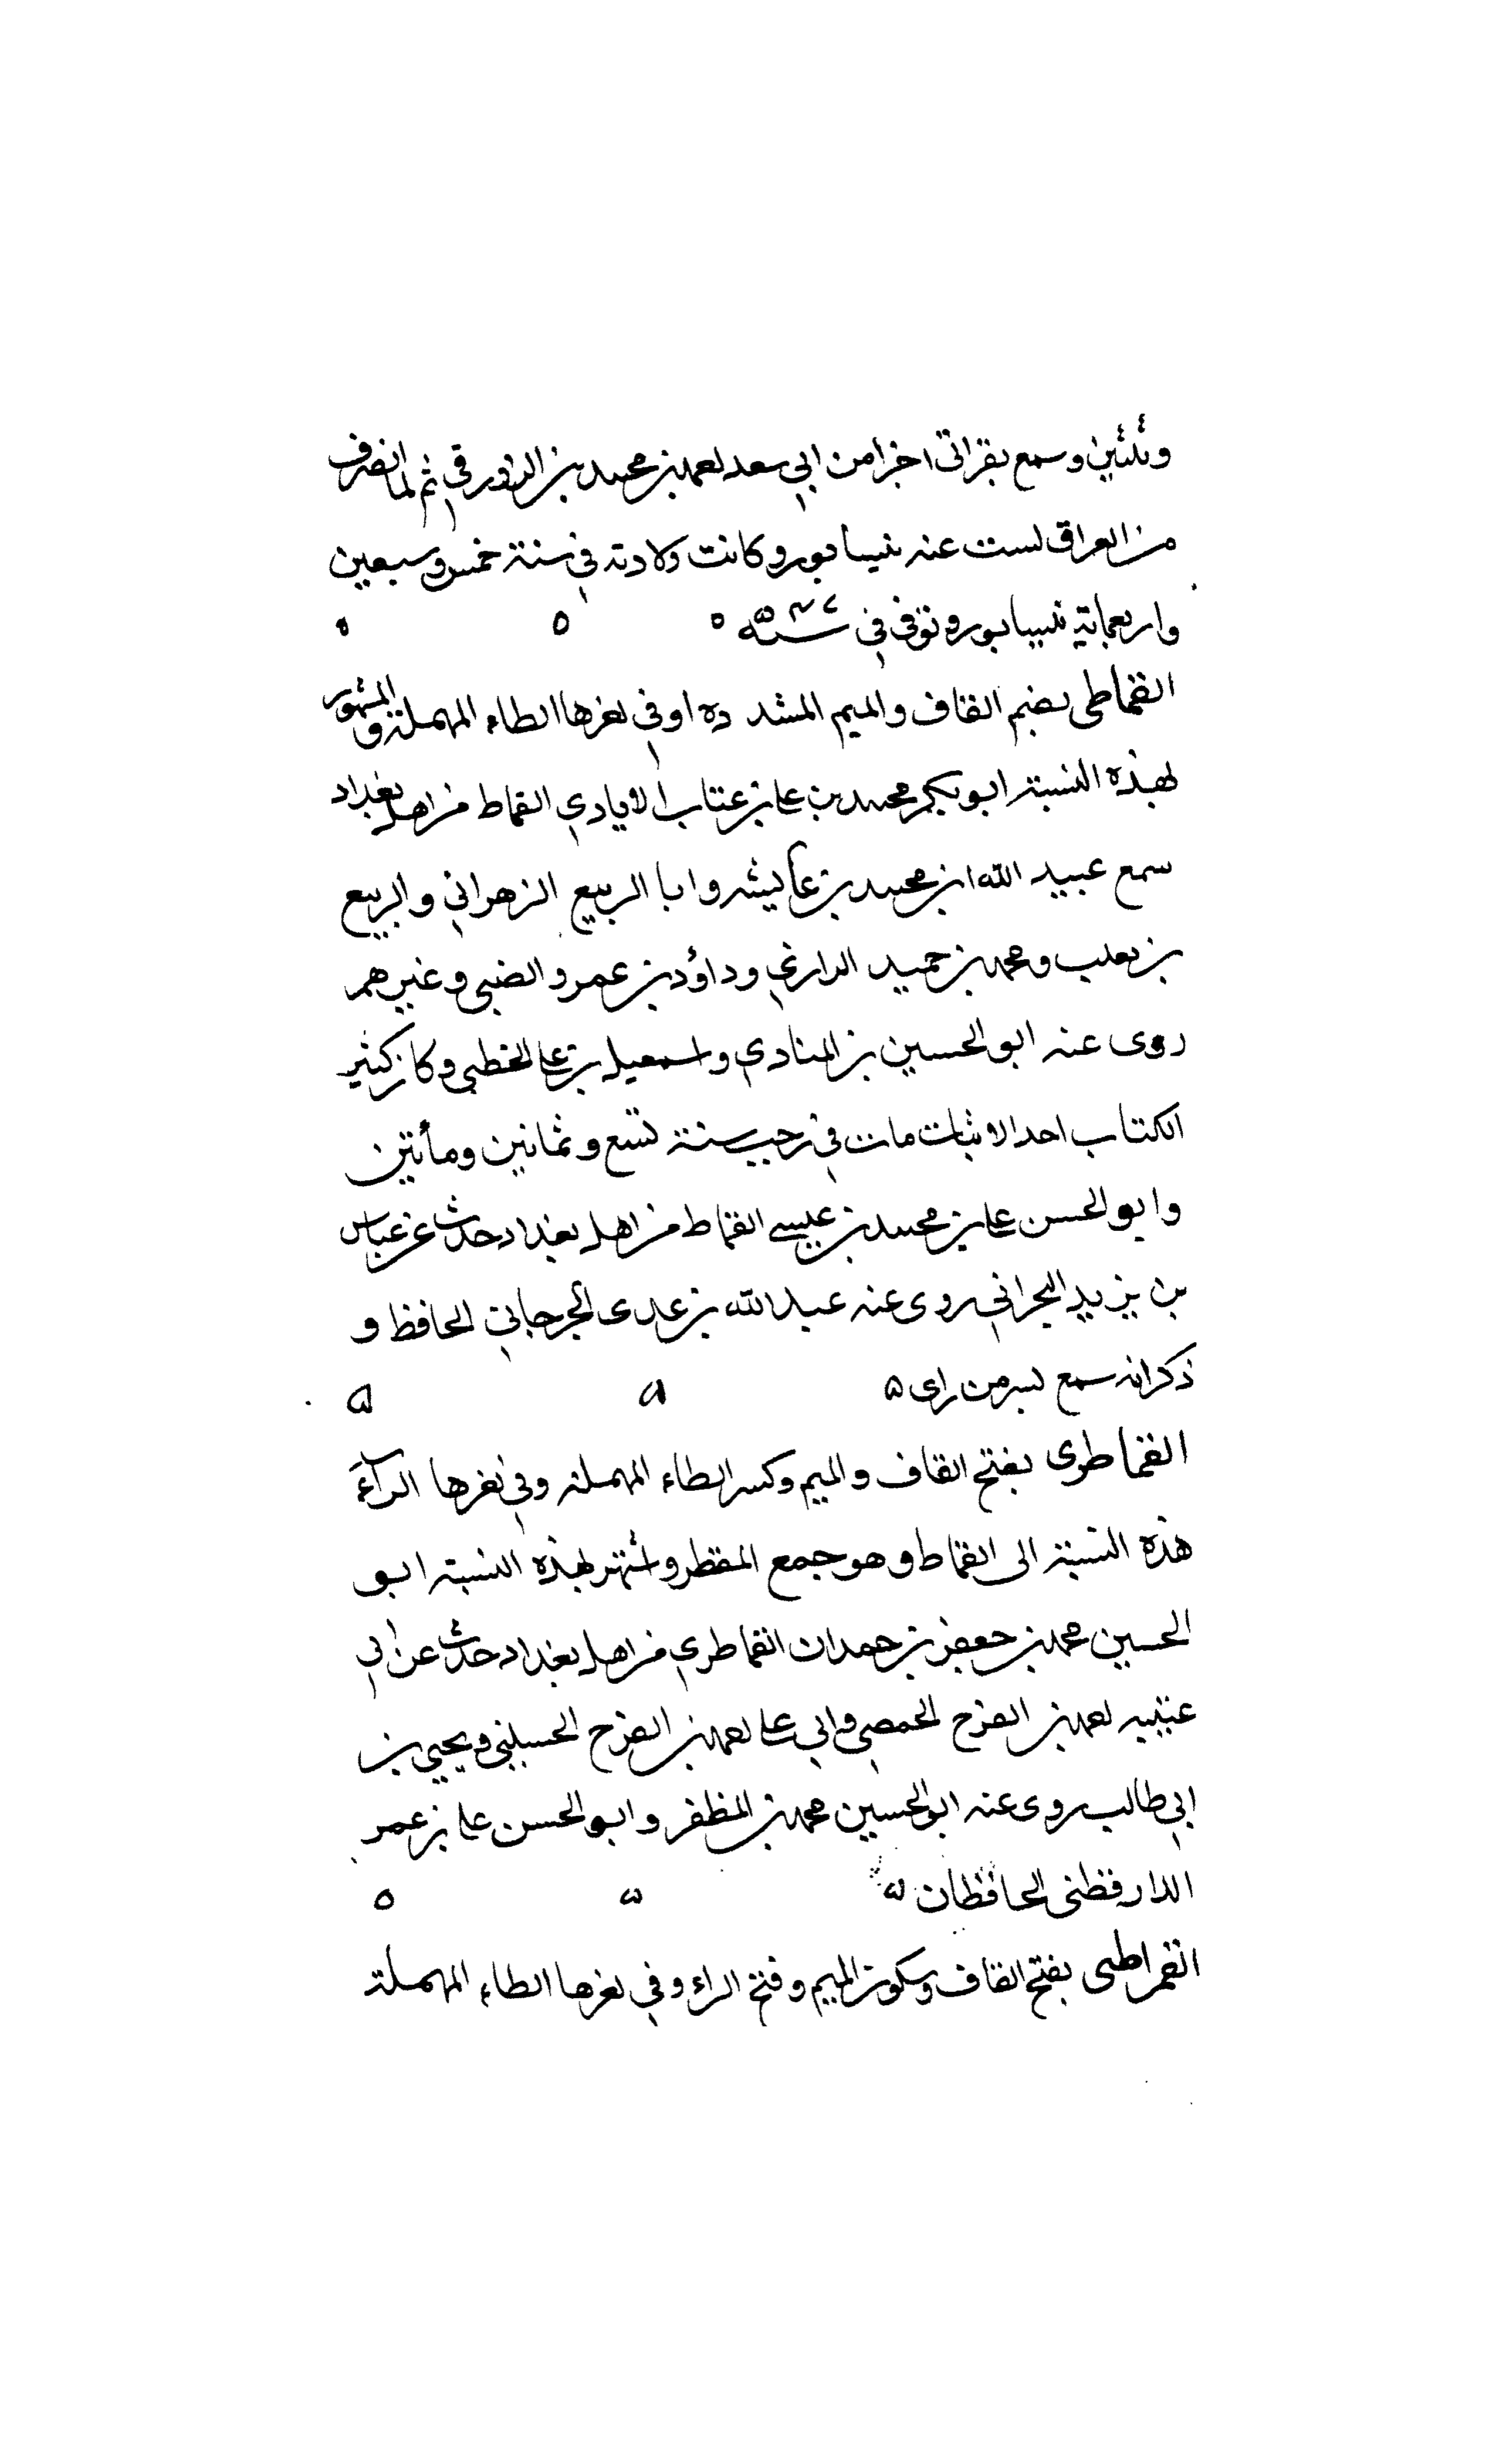 وثلثين وسمع بقراتي اخرا من ابي سعد احمد بن محمد بن الزوزني ثم لما انصرف
من العراق لست عنه نيسابور وكانت ولادته في سنة خمس وسبعين
واربعماية نيسابور وتوفي في سنة
القماطى بضم القاف والميم المشددة اوفي اخرها الطاء المهملة والمشهور
بهذه النسبة ابو بكر محمد بن على بن عتاب الايادي القماط من اهل بغداد
سمع عبيد الله ابن محمد بن عايشه وابا الربيع الزهراني والربيع
بن تعلب ومحمد بن حميد الدارني وداؤد بن عمرو الضبى وغيرهم
روى عنه ابو الحسين بن المنادي واسمعيل بن على الخطبي وكان كثير
الكتاب احد الاثبات مات في رجب سنة تسع وثمانين ومأتين
وابو الحسن على بن محمد بن عيسى القماط من اهل بغداد حدث عن عباس
بن يزيد البحراني روى عنه عبد الله بن عدى الجرجاني الحافظ و
ذكر انه سمع بسر من راى
القماطرى بفتح القاف والميم وكسر الطاء المهملة وفي اخرها الراء
هذه النسبة الى القماط وهو جمع المقطر واشتهر بهذه النسبة ابو
الحسين محمد بن جعفر بن حمدان القماطري من اهل بغداد حدث عن ابي
عتيبه احمد بن الفرح الحمصي وابي على احمد بن الفرح ويحيى بن
ابي طالب روى عنه ابو الحسين محمد بن المظفر وابو الحسن على بن عمر
الدارقطنى الحافظان
القمراطى بفتح القاف وسكون الميم وفتح الراء وفي اخرها الطاء المهملة